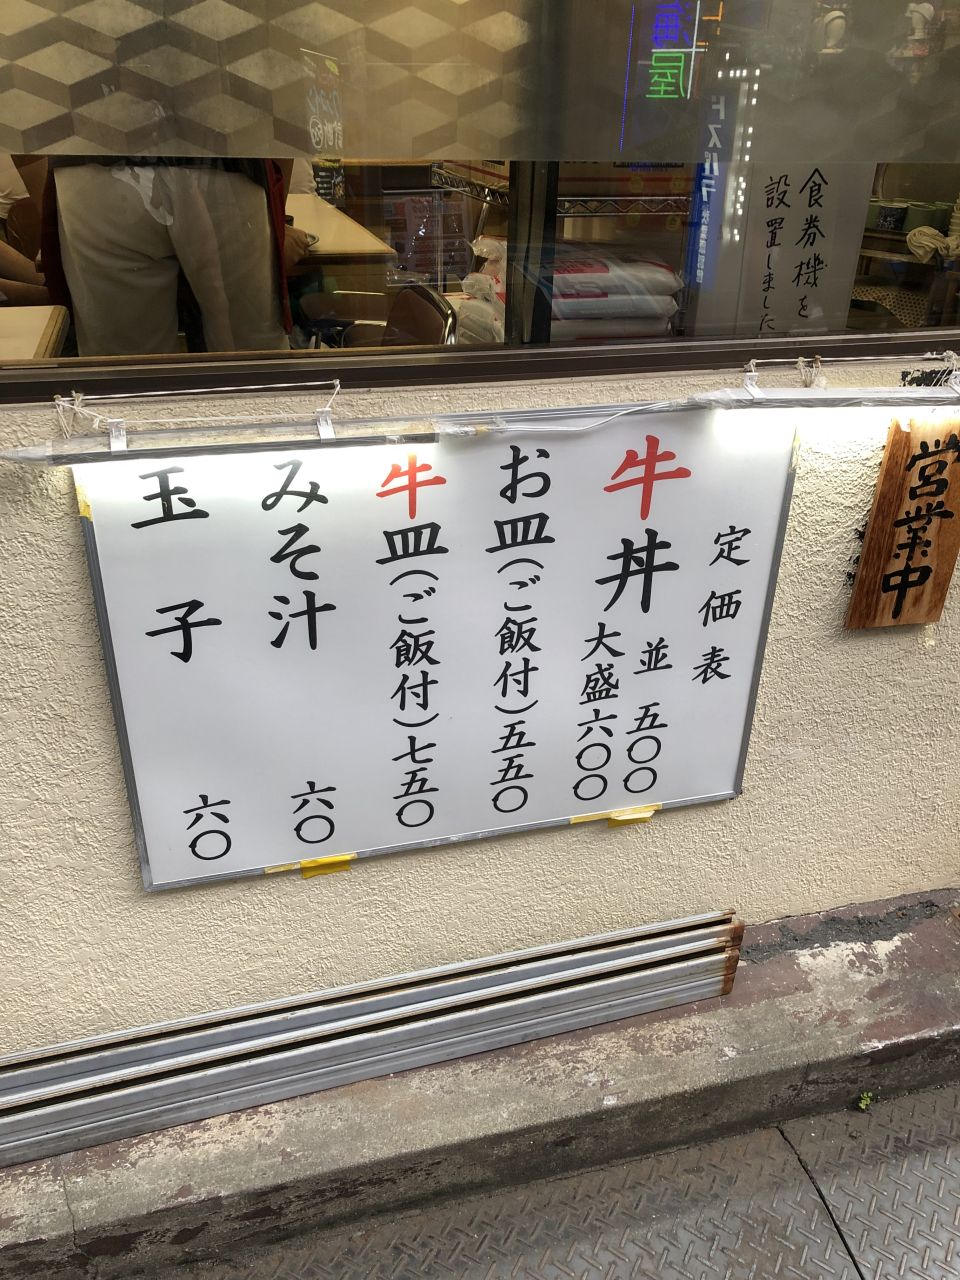 食券機を
設置しました
ドスパラ
海
屋
営業中
定価表
牛丼 並 五〇〇
大盛 六〇〇
お皿(ご飯付)五五〇
牛皿(ご飯付)七五〇
みそ汁 六〇
玉子 六〇